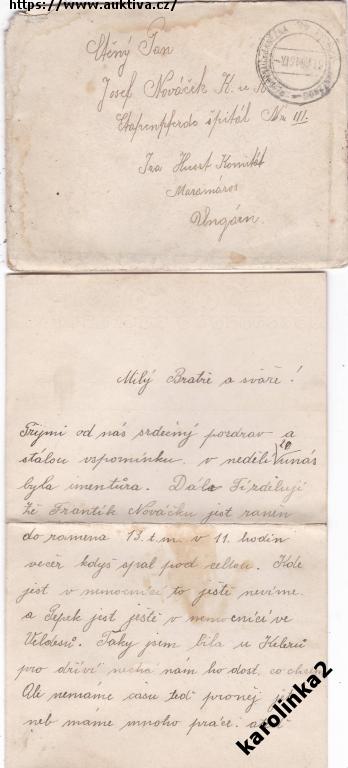 https://www.auktiva.cz/
Ctěný Pan
Josef Nováček K. u K
Etapenpferde špitál Nro III.
Iza Huszt Komität
Maramáros
Ungarn.
Milý Bratře a sváře!
Přijmi od nás srdečný pozdrav a
stálou vzpomínku. v neděli 20 unás
byla inentůra. Dále Ti zdělují
že Frantík Nováčku jest raněn
do ramena 13. t.m. v 11. hodin
večer kdyš spal pod celtou. Kde
jest v nemocnici to ještě nevíme.
a Pepek jest ještě v nemocnici ve
Veldesů. Taky jsem bila u Kelerů
pro dříví nechá nám ho dost, co
Ale nemáme času teď proněj
neb máme mnoho práce. a
karolinka2